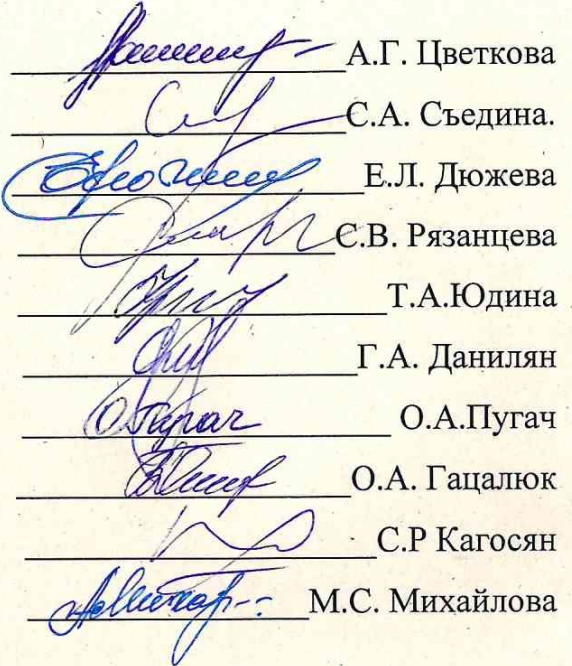 А.Г. Цветкова
С.А. Съедина.
Е.Л. Дюжева
С.В. Рязанцева
Т.А.Юдина
Г.А. Данилян
О.А.Пугач
О.А. Гацалюк
С.Р Кагосян
М.С. Михайлова